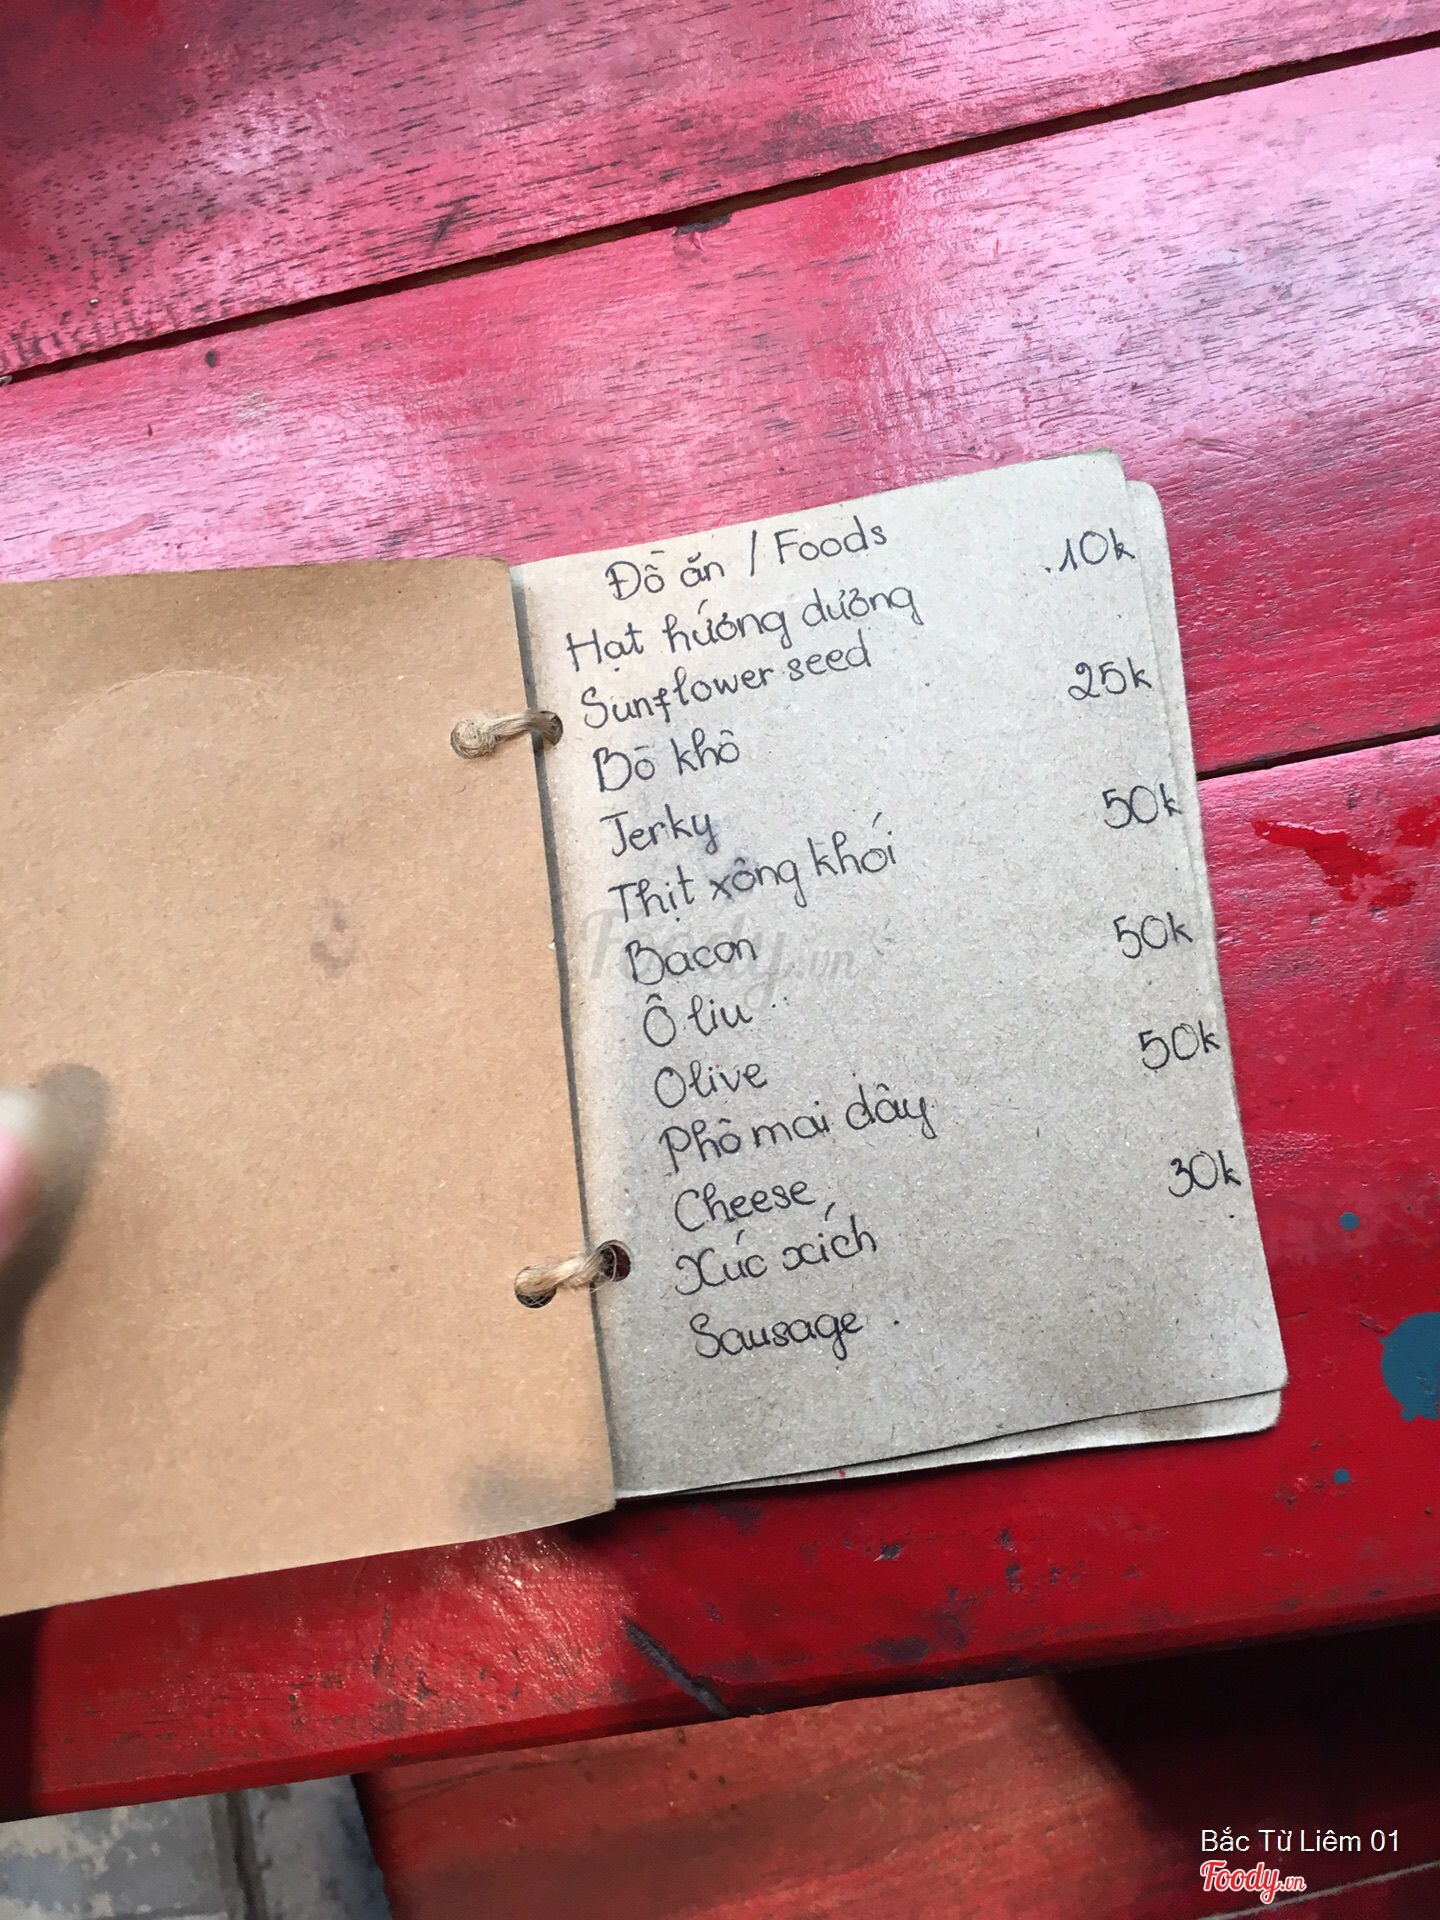 Đồ ăn / Foods
Hạt hướng dương 10k
Sunflower seed
Bò khô 25k
Jerky
Thịt xông khói 50k
Bacon
Ô liu 50k
Olive
Phô mai dây 50k
Cheese
Xúc xích 30k
Sausage
Foody.vn
Bắc Từ Liêm 01
Foody.vn